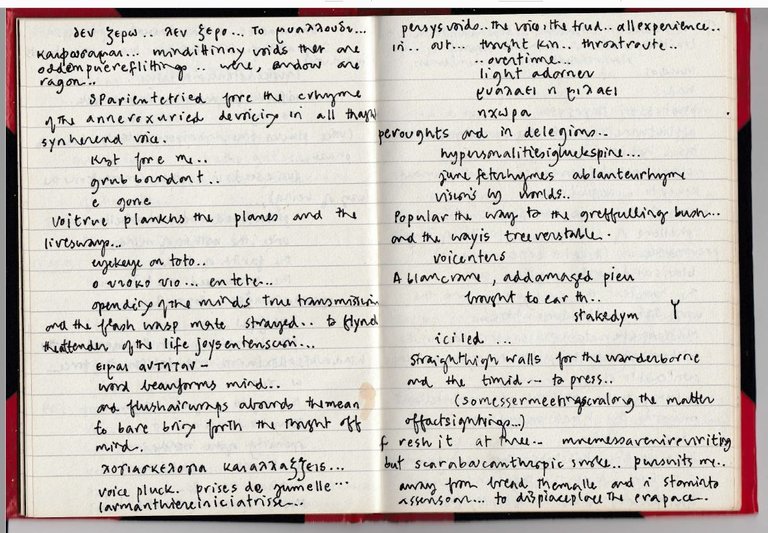 δεν ξερω... λεν ξερο... το μυαλλουδι...
καιρωσαμαι... mindittinny voids that are
oddempuereflittings... were, andow are
ragon..
sparientetried fore the cvrhyme
of the annerexuried devoicing in all though
synherend voice.
kust fore me..
grub boundant..
e gone
Voitrue plankhs the planes and the
livesways...
eyekeye on toto..
ο υτοκο υιο... en tete...
opending of the minds true transmission
and the flash wasp mate strayed.. to flynd
the attender of the life joysentension...
ειμαι αυτηταν –
word beamforms mind...
and flushairwraps abounds themean
to bare bring forth the thought off
mind.
λογιασκελογια καιαλλαξξεις...
voice pluck. prises de jumelle...
larmanthiereiniciatrisse...
persysvoids.. the voice, the trud.. all experience..
in.. out.. thought kin.. throatroute..
.. overtime...
light adorner
μυαλαει η μιλαει
ηχωρα
peroughts and in delegions..
hypersonalitiesigluekspine...
june feturhymes ablanteurhyme
visions by worlds..
Popular the way to the greffulling bush...
and the wayis treeverstable.
voicenters
Ablancrane, addamaged pieu
brought to earth..
stakedym Y
iciled ...
straighthigh walls for the wanderborne
and the timid -- to press..
(somessermeetingscralong the matter
offactsightings...)
fresh it at three... mnemesouvenirewriting
but scarabacanthropic smoke.. pursuits my..
away from bread themalle and i staminto
assension... to displaceplace the erapace..